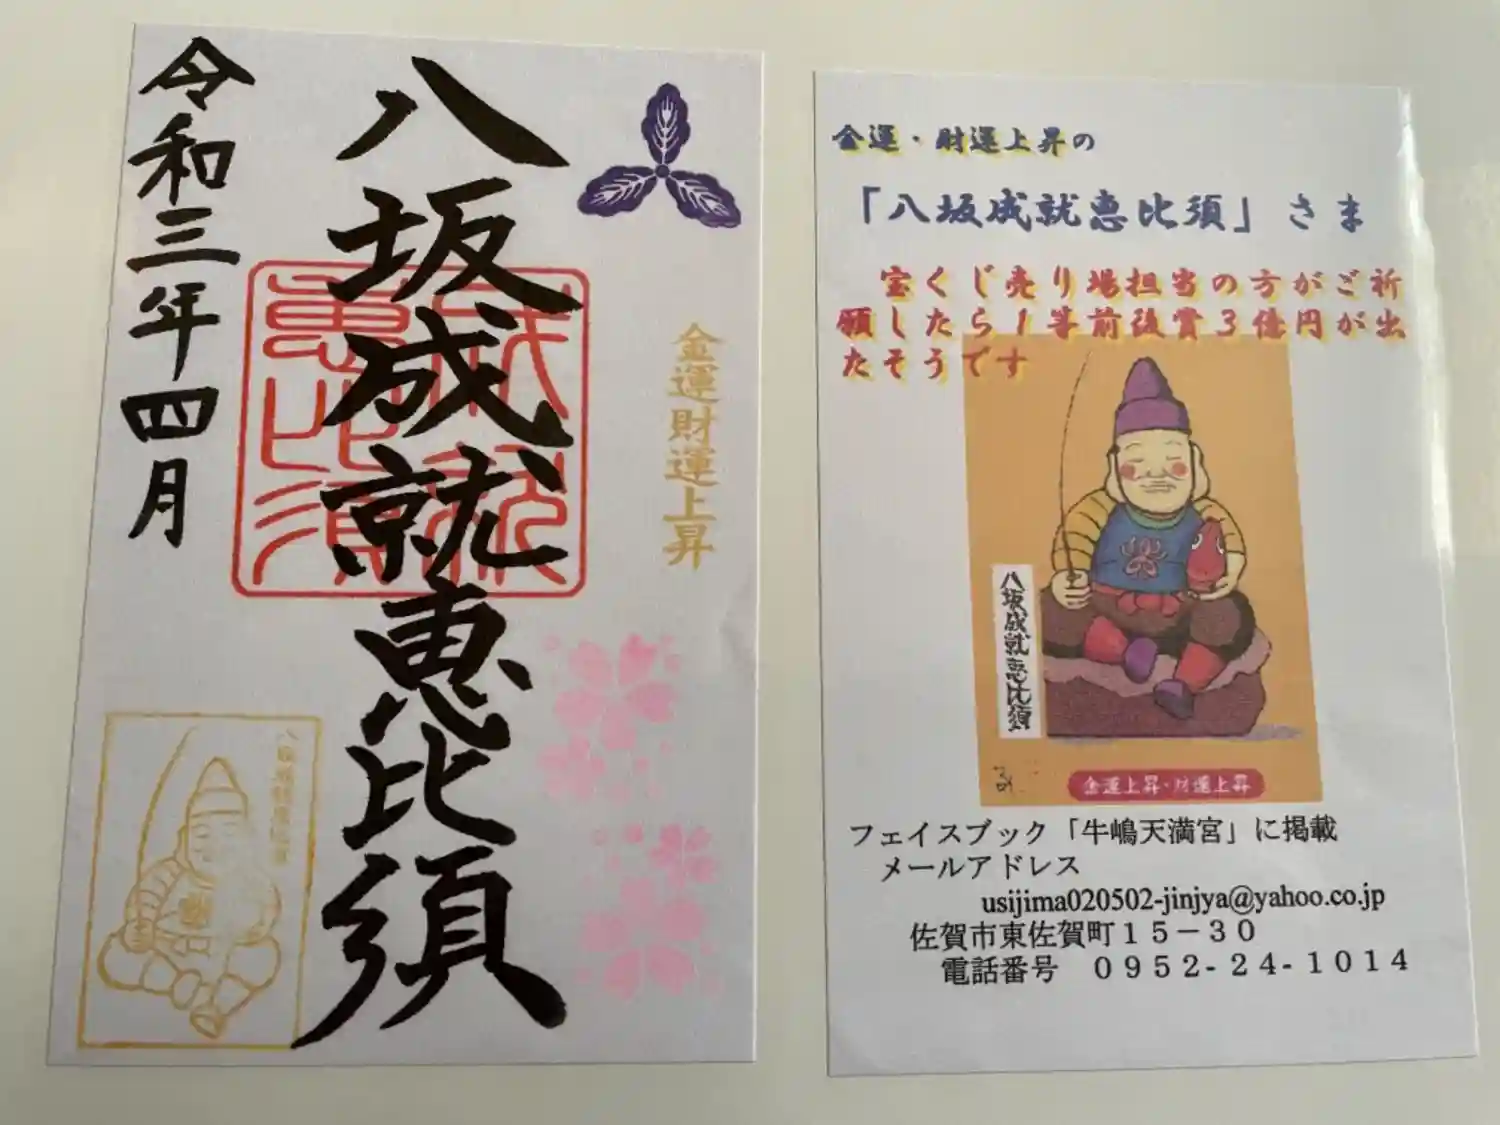 八坂成就恵比須
令和三年四月
金運財運上昇
成就
恵比須
八坂成就恵比須
金運・財運上昇の
「八坂成就恵比須」さま
宝くじ売り場担当の方がご祈
願したら1等前後賞3億円が出
たそうです
八坂成就恵比須
金運上昇・財運上昇
フェイスブック「牛嶋天満宮」に掲載
メールアドレス
usijima020502-jinjya@yahoo.co.jp
佐賀市東佐賀町15-30
電話番号 0952-24-1014